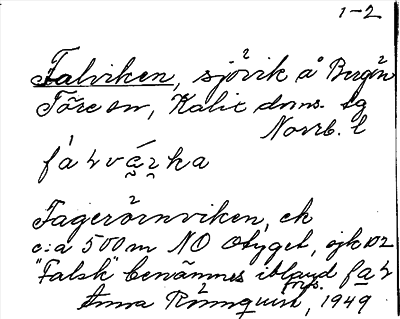 1-2
Falviken, sjövik å Bergön
Töre sn, Kalix doms. tg
Norrb. l
Fagerörnviken, ek
c:a 500 m NO Otyget, ejk 102
"Falsk" benämnes ibland
Anna Rönnquist, 1949